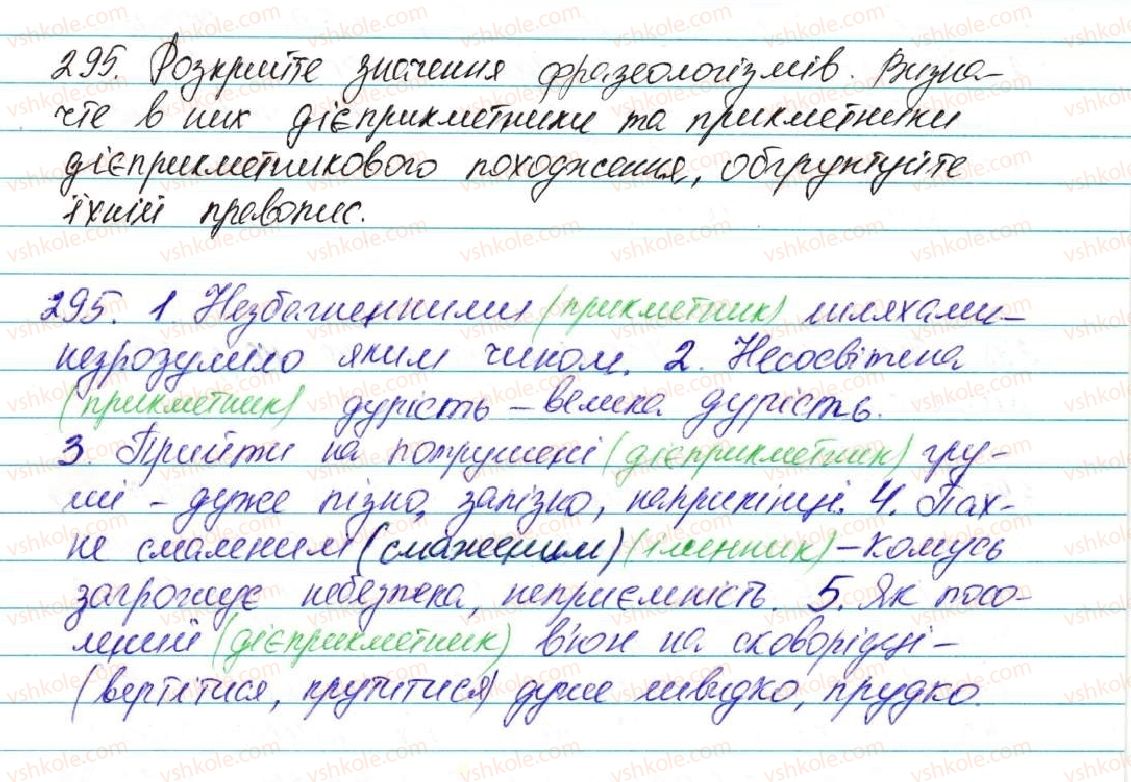 295. Розкрийте значення фразеологізмів. Визна-
чте в них дієприкметники та прикметники
дієприкметникового походження, обґрунтуйте
їхній правопис.
295. 1. Незбагненними (прикметник) шляхами -
незрозуміло яким чином. 2. Несосвітенна
(прикметник) дурість - велика дурість.
3. Прийти на потрушені (дієприкметник) гру-
ші - дуже пізно, запізно, наприкінці. 4. Пах-
не смаленим (смаженим) (іменник) - комусь
загрожує небезпека, неприємність. 5. Як посо-
лений (дієприкметник) в'юн на сковорідці -
(вертітися, крутитися) дуже швидко, прудко.